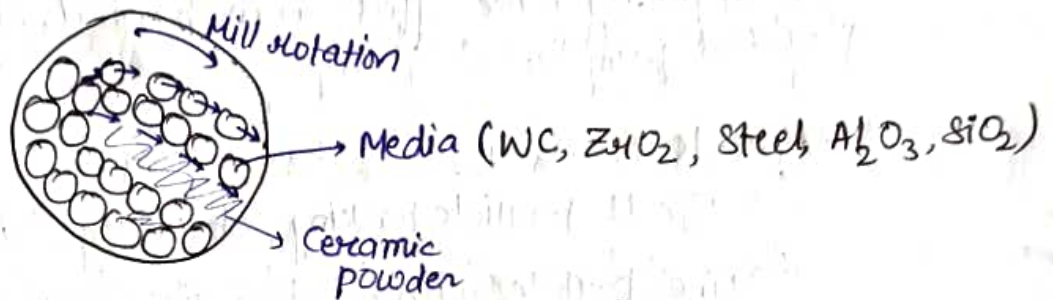 Mill rotation
Media (WC, ZrO₂, Steel, Al₂O₃, SiO₂)
Ceramic
powder